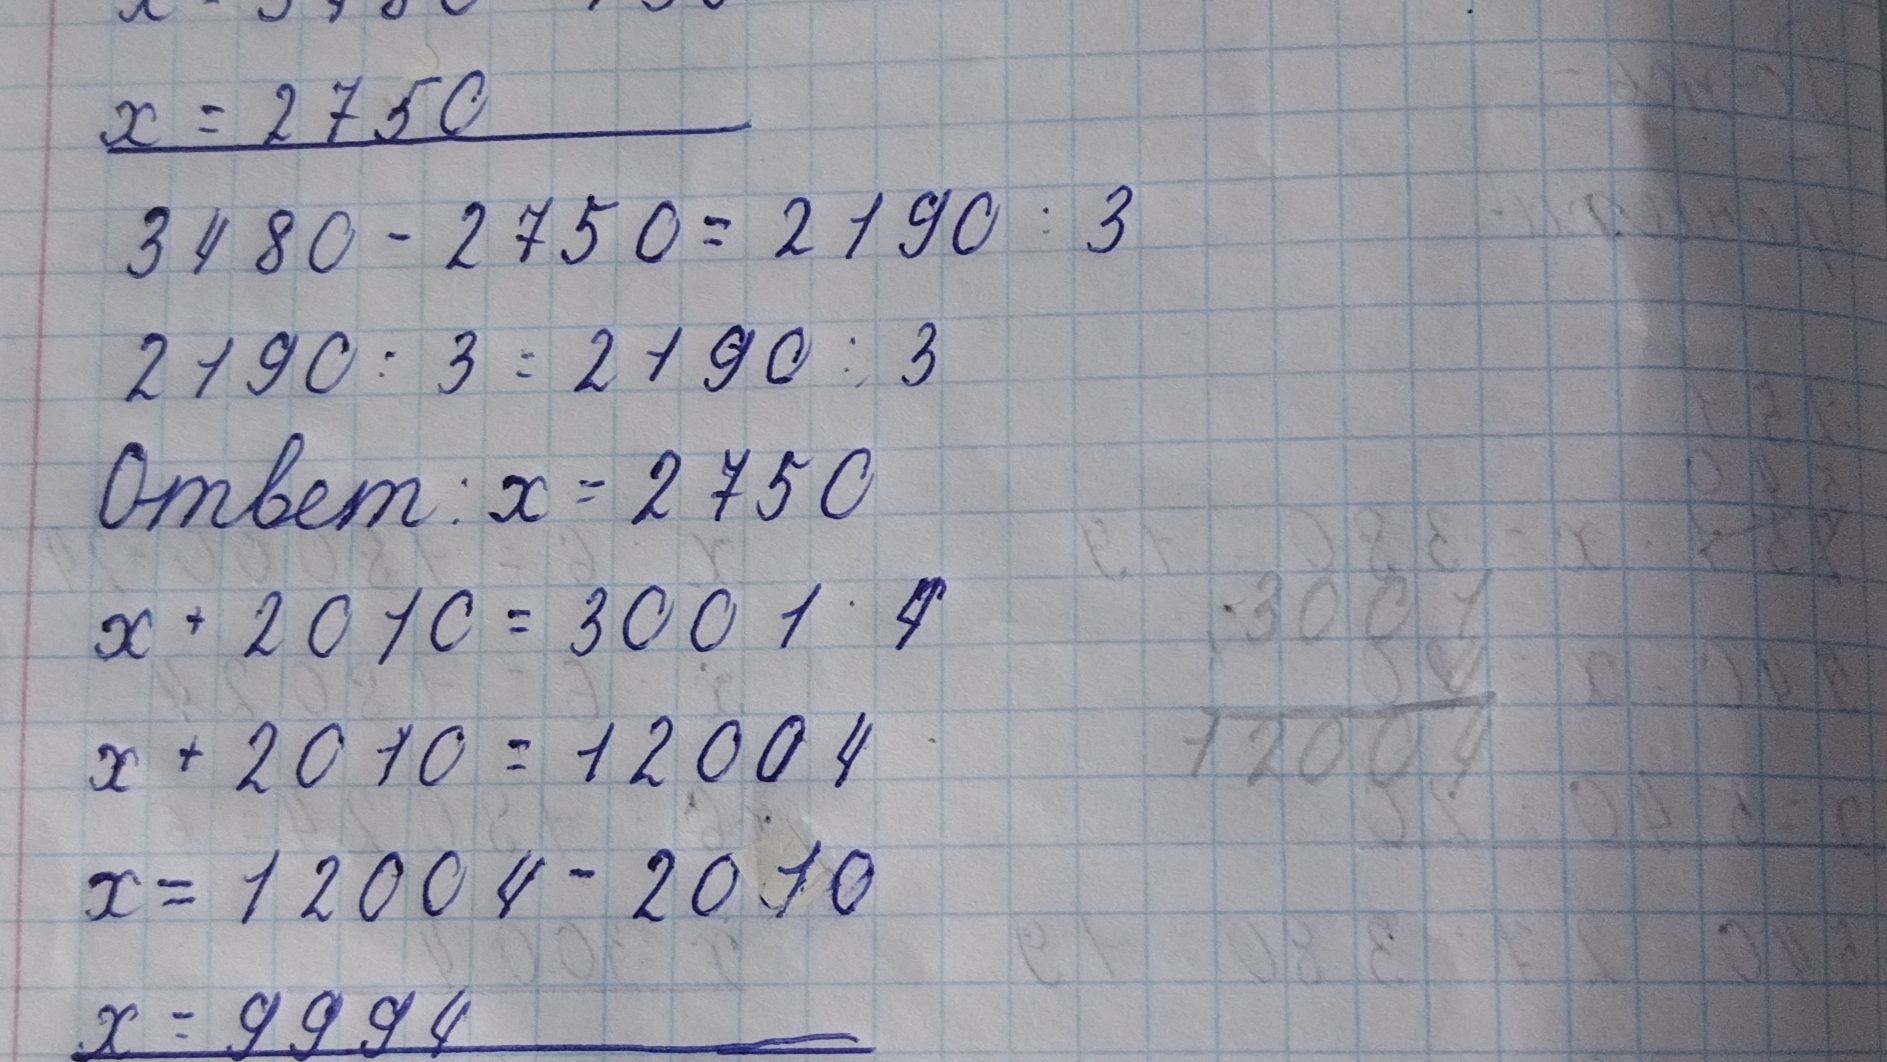 x = 2750
3480 - 2750 = 2190 : 3
2190 : 3 = 2190 : 3
Ответ: x = 2750
x + 2010 = 3001 · 4
3001
4
x + 2010 = 12004
12004
x = 12004 - 2010
x = 9994